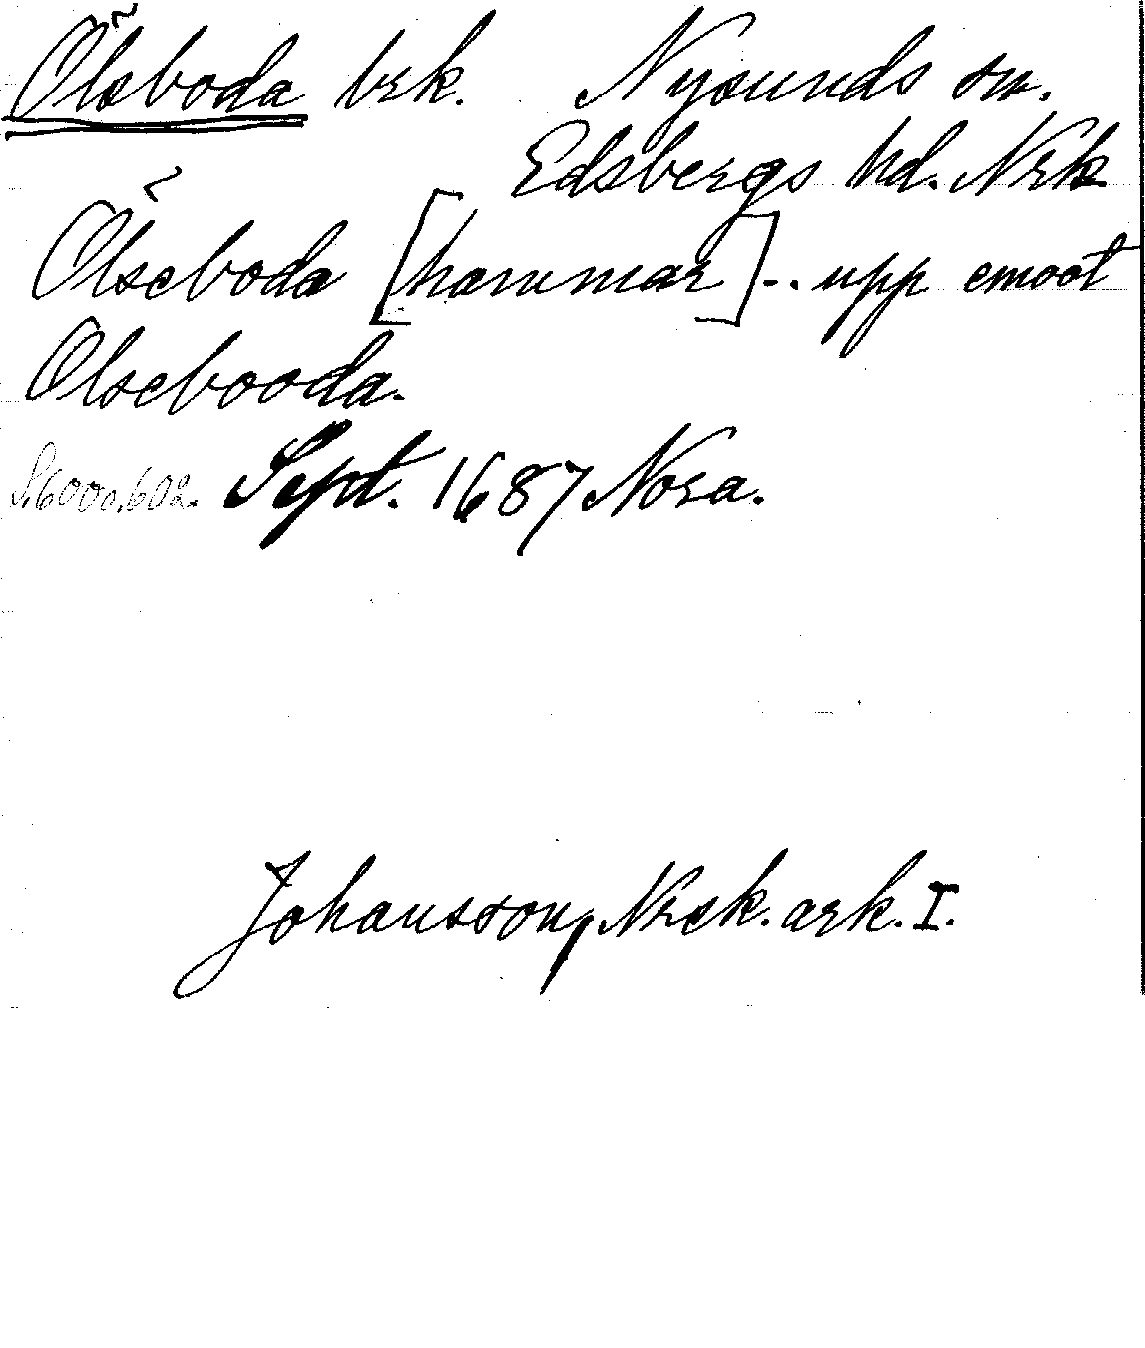 Ölsboda brk. Nysunds sn.
Edsbergs hd. Nrk
Ölseboda [hammar] .. upp emoot
Olsebooda.
S. 600 o. 602. Sept. 1687 Nora.
Johansson, Norsk. ark. I.